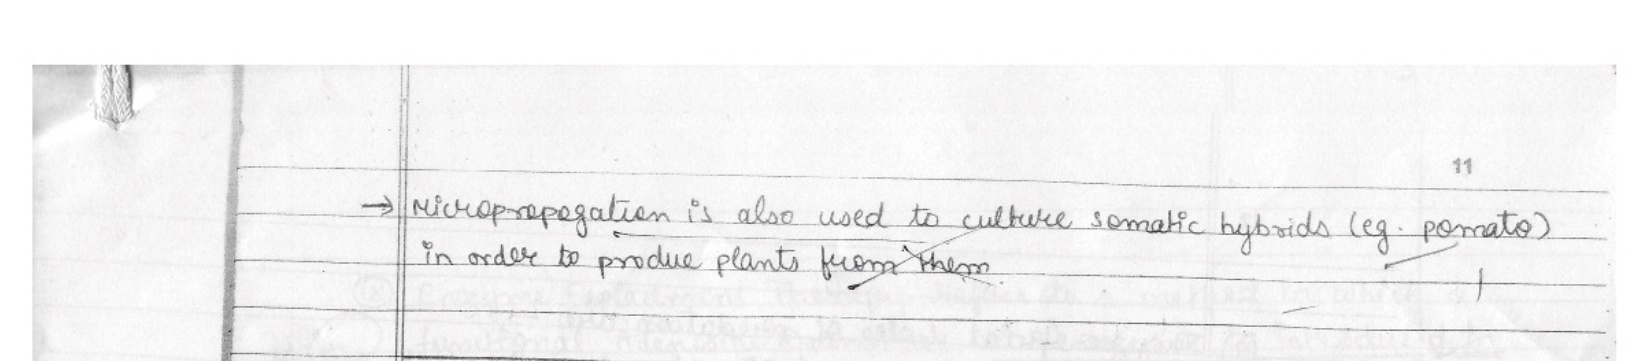 11
→ Micropropogation is also used to culture somatic hybrids (eg. pomato)
in order to produe plants from them